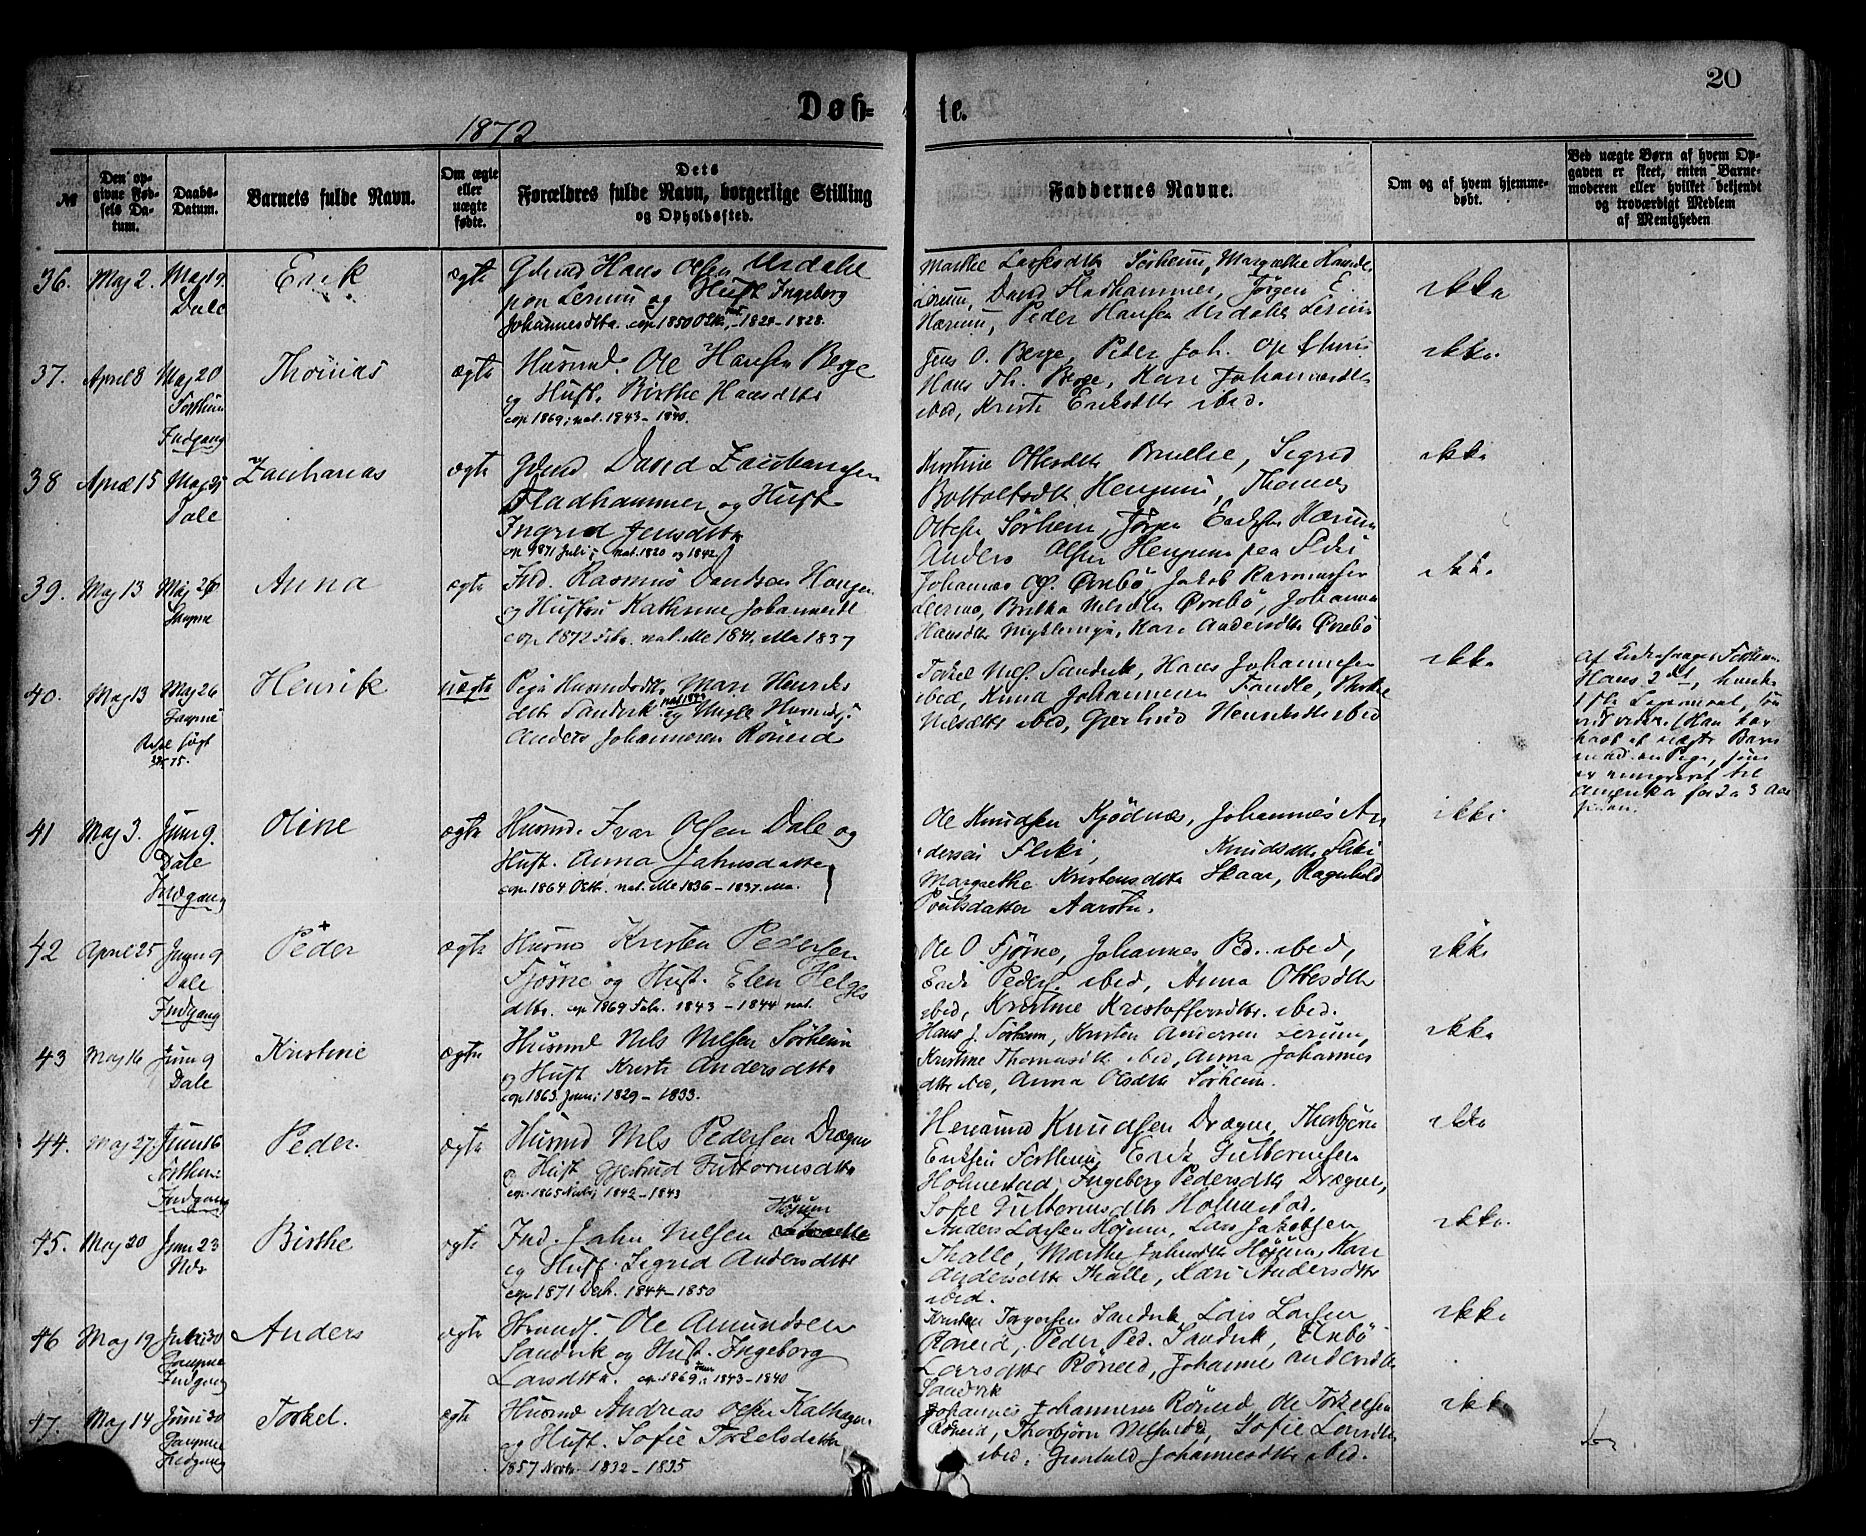 20
Døb-
te.
1872
№
Den op-
givne Fød-
sels Da-
tum.
Daabs-
Datum.
Barnets fulde Navn.
Om ægte
eller
uægte
fødte.
Dets
Forældres fulde Navn, borgerlige Stilling
og Opholdssted.
Faddernes Navne.
Om og af hvem hjemme-
døbt.
Ved uægte Børn af hvem Op-
gaven er skeet, enten Barne-
moderen eller hvilket bekjendt
og troværdigt Medlem
af Menigheden
36. Maj 2. Maj 9
Dale
Erik
ægte
Gdmd Hans Olsen Urdahl
paa Lerum og Hust. Ingeborg
Johannesdtr. cop 1850 Oktr. nat. 1824-1828.
Marthe Larsdtr Sørheim, Margrethe Hansdtr
Lerum, David Fladhammer, Jørgen E.
Hærum, Peder Hansen Urdahl Lerum
ikke
37. April 8 Maj 20
Forthun
Indgang
Thomas
ægte
Husmd. Ole Hansen Berge
og Hust. Birthe Hansdtr
cop 1869; nat. 1843-1840.
Jens O. Berge, Peder Joh.
Hans Th. Berge, Kari Johannesdtr
ibid, Kristi Eriksdtr ibid.
ikke
38 April 15 Maj 25
Dale
Zacharias
ægte
Gdmd David Zachariassen
Fladhammer og Hust
Ingrid Jensdtr
cop 1871 Juli; nat. 1820 og 1842
Kristine Ottesdtr Brullie, Sigrid
Bottolfsdtr Hengum, Thomas
Ottesen Sørheim, Jørgen Eriksen Hærum
Anders Olsen Hengum paa Fliki
ikke
39. Maj 13 Maj 26
Gaupne
Anna
ægte
Ind. Rasmus Davidsen Haugen
og Hustru Kathrine Johannesdt
cop 1872 Febr. nat. Me 1841, Ma 1837
Johannes Ols. Ørrebø, Jakob Rasmussen
Lermo, Britha Nilsdtr Ørrebø, Johanna
Hansdtr Myklemyr, Kari Andersdtr Ørrebø
ikke
40. Maj 13 Maj 26
Gaupne
Henrik
uægte
Pige Husmdsdtr. Mari Henriks
dtr Sandvik nat 1849 og Ungk Husmds.
Anders Johannesen Røneid
Torkel Nils. Sandvik, Hans Johannesen
ibid, Anna Johannesen Fandle,
Nilsdtr ibid, Gjertrud Henriksdtr ibid
ikke
Hans 2det, hendes
1ste Leiermaal, saa
vidt vides. (Han har
havt et uægte Barn
med en Pige, som
er emigreret til
Amerika for 2 a 3 Aar
siden.
41 Maj 3. Juni 9.
Dale
Indgang
Oline
ægte
Husmd. Ivar Olsen Dale og
Hust. Anna Jahnsdatter
cop 1864 Octr. nat. Me 1836-1837. Ma.
Ole Knudsen Kjødnæs, Johannes An
dersen Fliki, Knudsdtr Fliki
Margrethe Kristensdtr Skaar, Ragnhild
Poulsdatter Aarstu.
ikke
42 April 25 Juni 9
Dale
Indgang
Peder
ægte
Husmd Kristen Pedersen
Fjørne og Hust. Elen Helges
dtr. cop 1869 Febr. 1843-1844 nat.
Ole O Fjørne, Johannes Pd. ibid,
Erik Peders. ibid, Anna Ottesdtr
ibid, Kristine Kristoffersdtr. ibid.
ikke
43 Maj 16 Juni 9
Dale
Kristine
ægte
Husmd Nils Nilsen Sørheim
og Hust Kristi Andersdtr
cop 1863. Juni; 1829-1833.
Hans J. Sørheim, Kristen Andersen Lerum,
Kristine Thomasdtr ibid, Anna Johannes
dtr ibid, Anna Olsdtr Sørheim.
ikke
44. Maj 27. Juni 16
Forthun
Indgang
Peder.
ægte
Husmd Nils Pedersen Drægni
og Hust Gjertrud Gutormsdtr
cop 1865 1842-1843
Hermund Knudsen Drægni, Thorbjørn
Eriksen Forthun, Erik Gutormsen
Holmestad, Ingeborg Pedersdtr Drægni,
Sofie Gutormsdtr Holmstad.
ikke
45. Maj 20 Juni 23
Næs
Birthe
ægte
Ind. Jahn Nilsen Højum
og Hust. Sigrid Andersdtr
cop 1871 Decb. 1844-1850
Anders Larsen Højum, Lars Jakobsen
Thalle, Marthe Jahnsdtr Højum, Kari
Andersdtr Thalle, Kari Andersdtr
ibid.
ikke
46 Maj 19 Juni 30
Gaupne
Indgang
Anders
ægte
Strands. Ole Amundsen
Sandvik og Hust. Ingeborg
Larsdtr. cop 1869; 1843-1840
Kristen Torgersen Sandvik, Lars Larsen
Røneid, Peder Ped. Sandvik,
Larsdtr Røneid, Johanne Andersdtr
Sandvik
ikke
47. Maj 14 Juni 30
Gaupne
Indgang
Torkel.
ægte
Husmd Andreas Olsen Kalhagen
og Hust. Sofie Torkelsdatter
1857 Novbr. 1832-1835
Johannes Johannesen Røneid, Ole Torkelsen
Røneid, Thorbjørn Nilsen ibid, Sofie Larsdtr
ibid, Gjertrud Johannesdtr ibid.
ikke